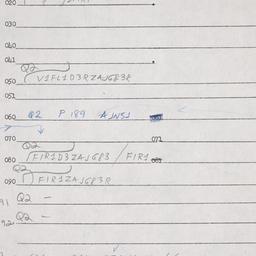 020
030
040
041
Q2
050 V1FL1D3RZAJG83R
051
060 Q2 P 189 AJW51
070 071
Q2
080 F1R1D3ZAJG83 / F1R1
Q2
090 F1R1ZAJG83R
91 Q2 -
92 Q2 -